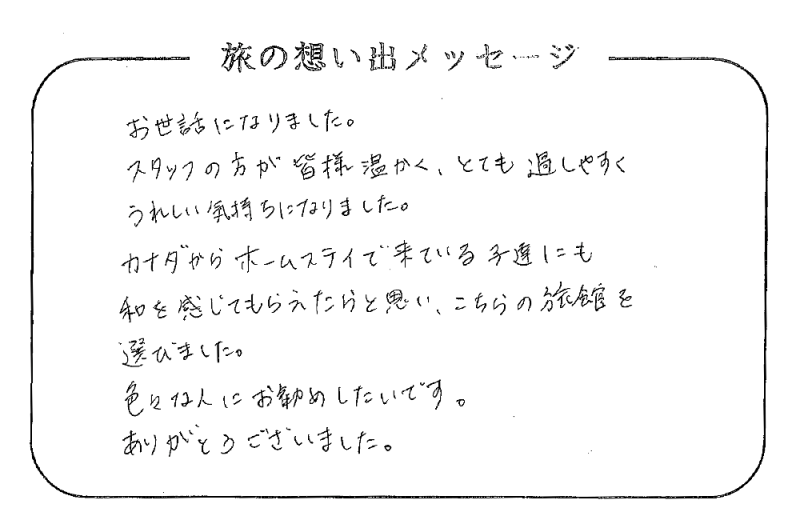 旅の想い出メッセージ
お世話になりました。
スタッフの方が皆様温かく、とても過しやすく
うれしい気持ちになりました。
カナダからホームステイで来ている子達にも
和を感じてもらえたらと思い、こちらの旅館を
選びました。
色々な人にお勧めしたいです。
ありがとうございました。